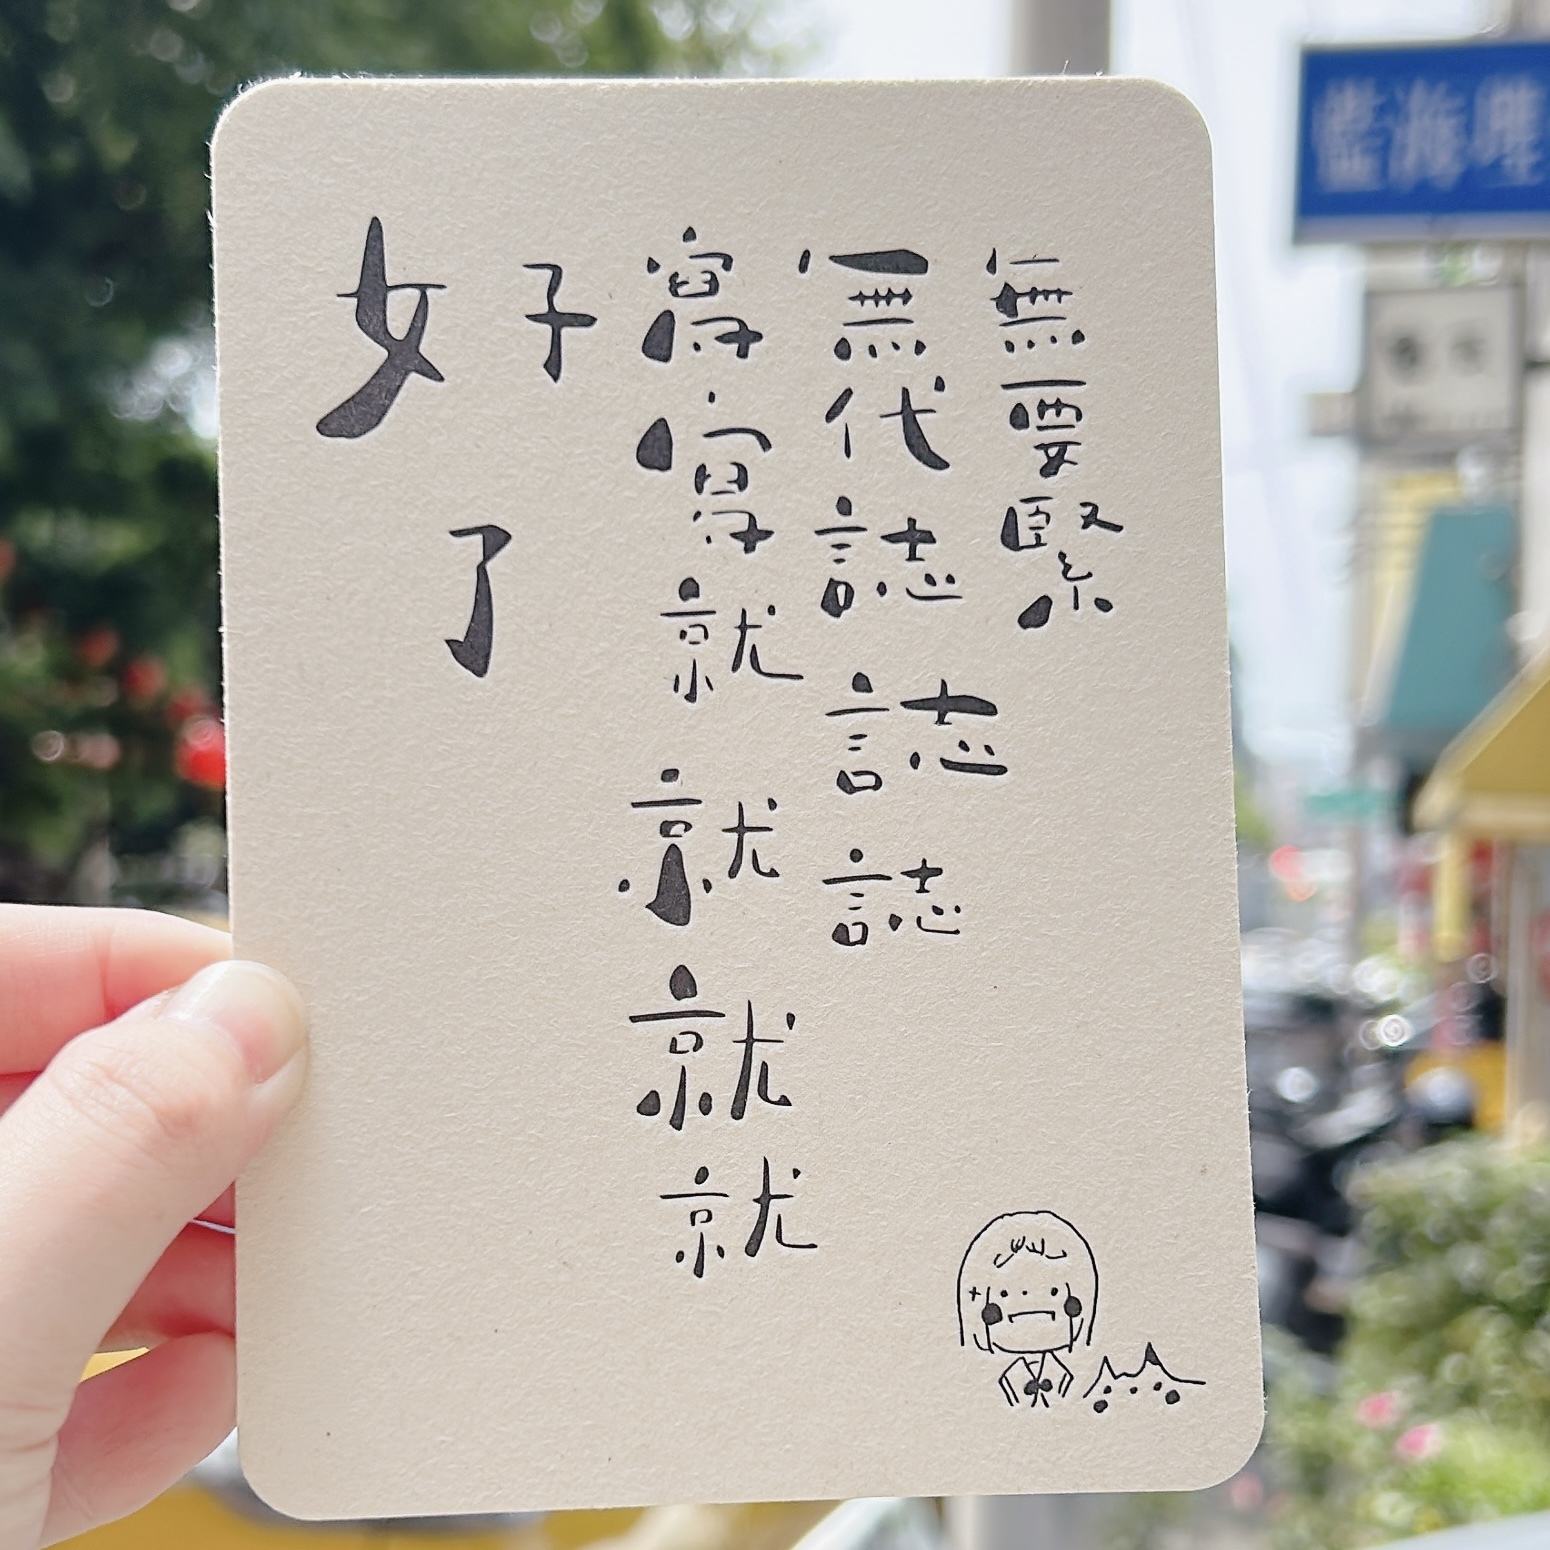 無要緊
無代誌誌誌
寫寫就就就就
好了